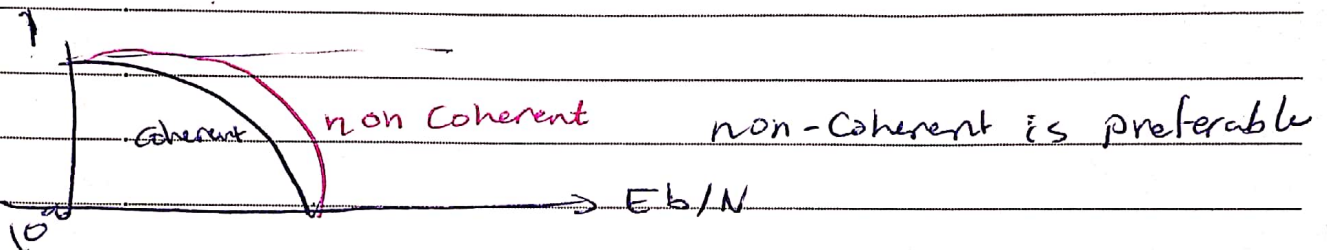 1
Coherent
non Coherent
non-Coherent is preferable
Eb/N